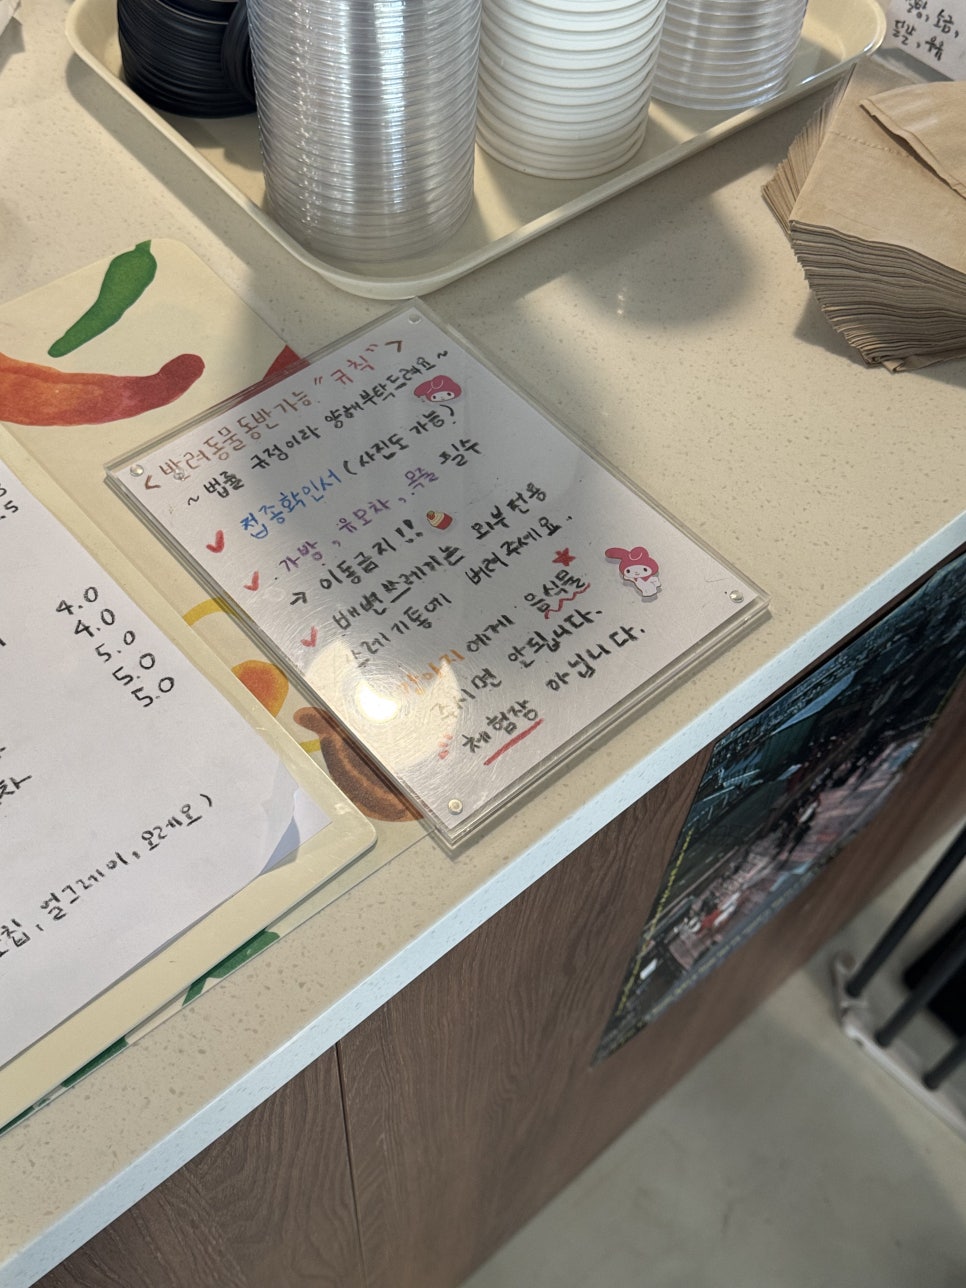 <반려동물동반가능 "규칙">
~법률 규정이라 양해부탁드려요~
✓ 접종확인서 (사진도 가능!)
✓ 가방, 유모차, 목줄 필수
→ 이동금지!!
✓ 배변쓰레기는 외부전용
쓰레기통에 버려주세요.
강아지에게 음식물
주시면 안됩니다.
체험장 아닙니다.
4.0
4.0
5.0
5.0
5.0
얼그레이, 오레오)